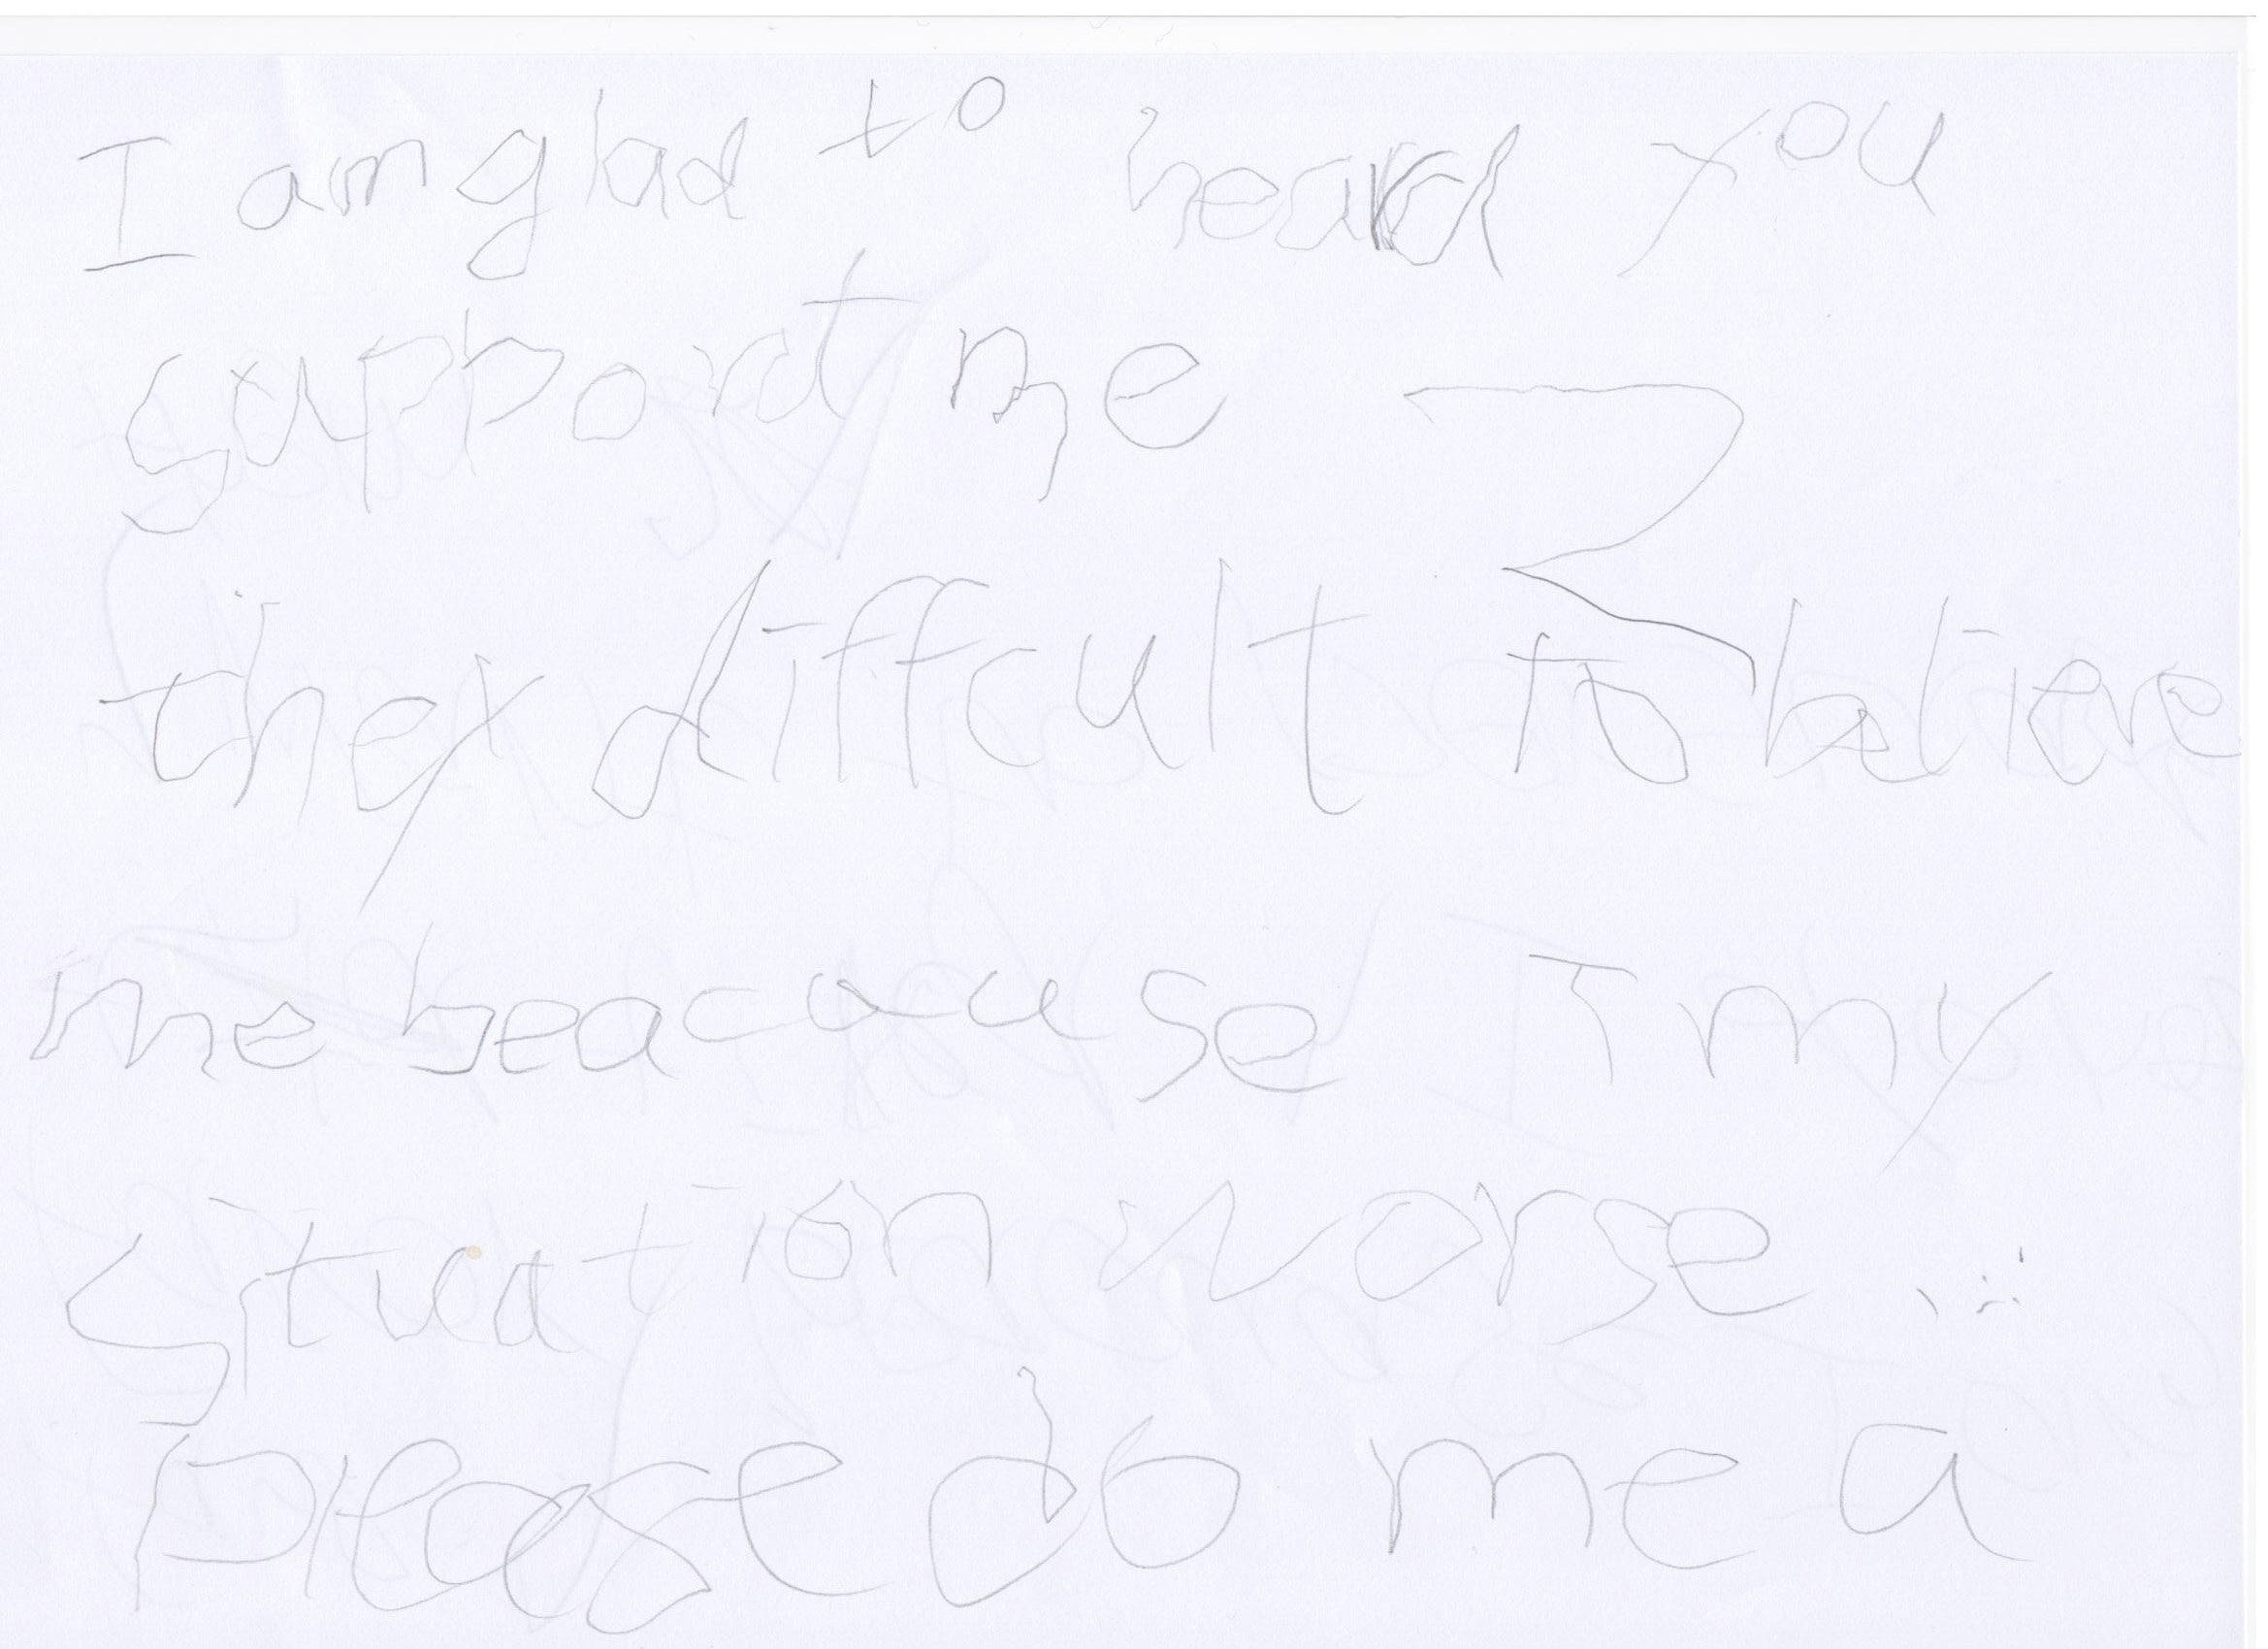 I am glad to heard you
support me
they diffcult to believe
me beacause I my
situation worse
please do me a